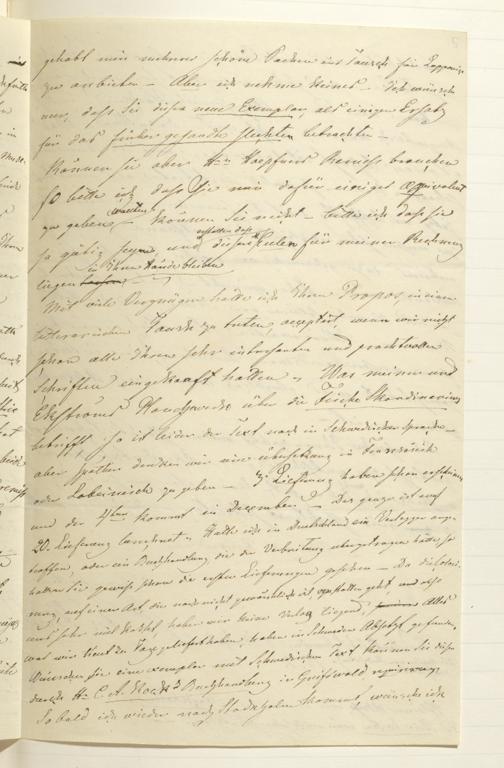 gehabt nun mehrere schöne Sachen im Tausch für
zu anbieten – Aber ich nehme keines – Ich wünsche
nur, dass Sie diese neue Exemplar, als einigen Ersatz
für das früher gesandte schlechten betrachten –
Können Sie aber Hrn Hoepfners brauchen
so bitte ich dass Sie mir dafür einiges æquivalent
zu geben – können Sie nicht – bitte ich dass sie
so gütig seyn, und gestatten dass für meiner Rechnung
in Ihren Hände bleiben
liegen
Mit viele Vergnügen hatte ich Ihren Propos, in einen
litterarischen Tausch zu treten, acceptirt, wenn wir nicht
schon alle Ihren sehr interessanten und prachtvollen
Schriften eingekauft hätten. Was meinen und
Ekströms Handwerk über die Fische Skandinaviens
betrifft, so ist leider der Text noch in Schwedischen Sprache –
aber später denken wir eine übersetzung in Französisch
oder Lateinisch zu geben – 3 Lieferung haben schon erschienen
und der 4ten kommt in December. – Das ganze ist auf
20. Lieferung berechnet. Hatte ich in Deutschland ein Verleger ange-
troffen, oder ein Buchhandlung die der Verbreitung übergetragen hätte so
hatten Sie gewiss schon die ersten Lieferungen gesehen – Da die Colori-
rung, auf einer Art die noch nicht gewöhnlich ist, und
uns sehr viel kostet haben wir keine Verlag liegend, Alles
was wir haben in Schweden Absatz gefunden.
Wünschen Sie eine exemplar mit Schwedischen Text, können Sie diese
durch Hr C. A. Kochs Buchhandlung in Greifswald requiriren
So bald ich wieder nach Stockholm kommt, wünsche ich